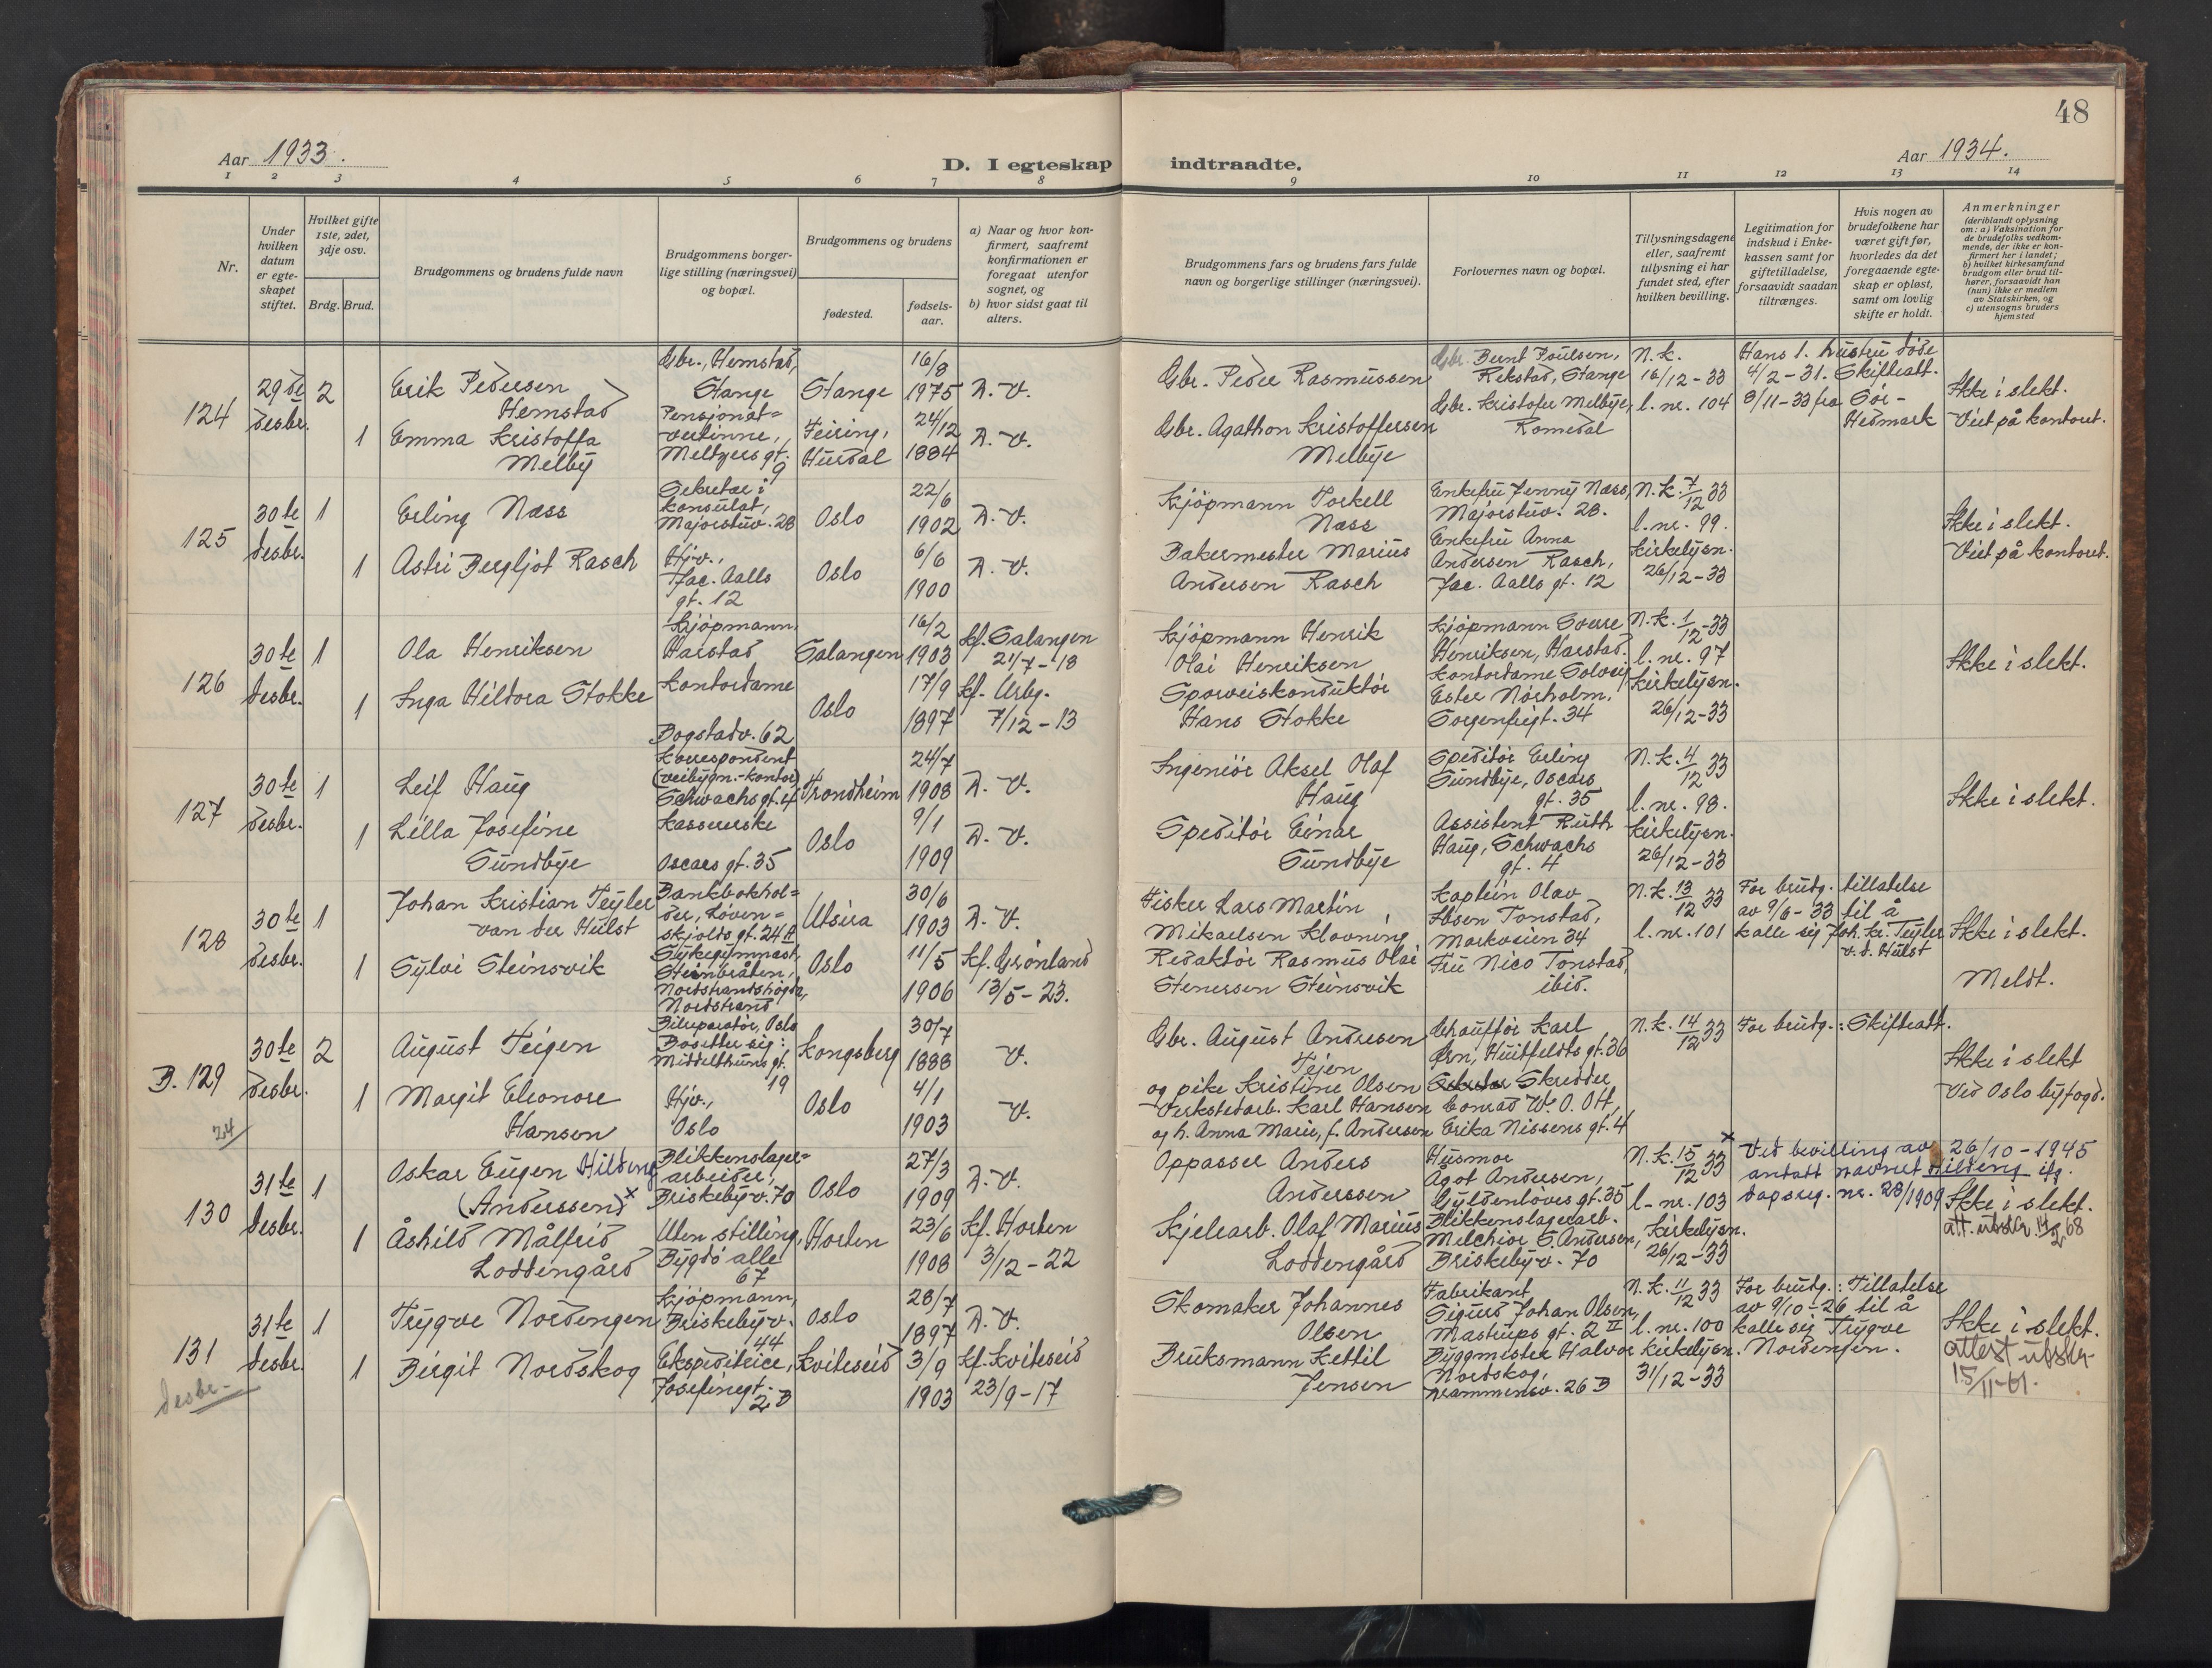 48
Aar 1933.
D. I egteskap indtraadte.
Aar 1934.
1 2 3 4 5 6 7 8 9 10 11 12 13 14
Nr.
Under hvilken datum er egteskapet stiftet.
Hvilket gifte 1ste, 2det, 3dje osv.
Brdg. Brud.
Brudgommens og brudens fulde navn
Brudgommens borgerlige stilling (næringsvei) og bopæl.
Brudgommens og brudens
fødested.
fødselsaar.
a) Naar og hvor konfirmert, saafremt konfirmationen er foregaat utenfor sognet, og
b) hvor sidst gaat til alters.
Brudgommens fars og brudens fars fulde navn og borgerlige stillinger (næringsvei).
Forlovernes navn og bopæl.
Tillysningsdagene eller, saafremt tillysning ei har fundet sted, efter hvilken bevilling.
Legitimation for indskud i Enkekassen samt for giftetilladelse, forsaavidt saadan tiltrænges.
Hvis nogen av brudefolkene har været gift før, hvorledes da det foregaaende egteskap er opløst, samt om lovlig skifte er holdt.
Anmerkninger
(deriblandt oplysning om: a) Vaksination for de brudefolks vedkommende, der ikke er konfirmert her i landet;
b) hvilket kirkesamfund brudgom eller brud tilhører, forsaavidt han (hun) ikke er medlem av Statskirken, og
c) utensogns bruders hjemsted
124
29de desbr.
2
Erik Pedersen Hemstad
Gbr., Hemstad, Stange
Stange
16/8 1975
D. V.
Gbr. Peder Rasmussen
Gbr. Bernt Poulsen, Rekstad, Stange
N.k. 16/12-33
Hans 1. hustru døde 4/2-31. Skifteatt. 9/11-33 fra Sør-Hedmark
Ikke i slekt.
1
Emma Kristoffa Melby
Pensjonat=vertinne, Meltzers gt. 9
Feiring, Hurdal
24/12 1884
D. V.
Gbr. Agathon Kristoffersen Melbye
Gbr. Kristofer Melbye, Romedal
l. nr. 104
Viet på kontoret.
125
30te desbr.
1
Erling Næss
Sekretær i konsulat, Majorstuv. 28
Oslo
22/6 1902
D. V.
Kjøpmann Torkell Næss
Enkefru Jenny Næss, Majorstuv. 28.
N.k. 7/12 33
l. nr. 99.
Ikke i slekt.
1
Astri Bergljot Rasch
Hjv., Jac. Aalls gt. 12
Oslo
6/6 1900
D. V.
Bakermester Marius Andersen Rasch
Enkefru Anna Andersen Rasch, Jac. Aalls gt. 12
Kirkelysn. 26/12-33
Viet på kontoret.
126
30te desbr.
1
Ola Henriksen
Kjøpmann, Harstad
Salangen
16/2 1903
kf. Salangen 21/7-18
Kjøpmann Henrik Olai Henriksen
Kjøpmann Sverre Henriksen, Harstad.
N.k. 1/12-33
l. nr. 97
Ikke i slekt.
1
Inga Hildora Stokke
Kontordame
Bogstadv. 62
Oslo
17/9 1897
kf. Urbg. 7/12-13
Sporveiskonduktør Hans Stokke
Kontordame Solveig Ester Nørholm, Sorgenfrigt. 34
Kirkelysn. 26/12-33
127
30te desbr.
1
Leif Haug
Korrespondent (veibygn.-kontor) Schwachs gt. 4
Trondheim
24/7 1908
D. V.
Ingeniør Aksel Olaf Haug
Speditør Erling Sundbye, Oscars gt. 35
N.k. 4/12 33
l. nr. 98.
Ikke i slekt.
1
Lilla Josefine Sundbye
Kassererske
Oscars gt. 35
Oslo
9/1 1909
D. V.
Speditør Einar Sundbye
Assistent Ruth Haug, Schwachs gt. 4
Kirkelysn. 26/12-33
128
30te desbr.
1
Johan Kristian Teyler van der Hulst
Bankbokhol=der, Løven=skjolds gt. 24 A
Utsira
30/6 1903
D. V.
Fisker Lars Martin Mikaelsen Klovning
Kaptein Olav Ibsen Tonstad, Markveien 34
N.k. 13/12 33
l. nr. 101
For brudg. tillatelse av 9/6-33 til å kalle sig Joh. Kr. Teyler v. d. Hulst
Ikke i slekt.
1
Sylvi Steinsvik
Sykegymnast, Steinbråten, Nordstrandshøgda, Nordstrand
Oslo
11/5 1906
kf. Grønland 13/5-23.
Redaktør Rasmus Olai Stenersen Steinsvik
Fru Nico Tonstad, ibid.
Meldt.
B. 129
30te desbr.
2
August Teigen
Bilreparatør, Oslo
Bosetter sig: Middelthuns gt. 19
Kongsberg
30/7 1888
V.
Gbr. August Andresen Tejen og pike Kristine Olsen
Chauffør Karl Ørn, Huitfeldts gt. 36
N.k. 14/12 33
For brudg.: Skifteatt.
Ikke i slekt
1
Margit Eleonore Hansen
Hjv., Oslo
Oslo
4/1 1903
V.
Verkstedarb. Karl Hansen og h. Anna Marie, f. Andersen
Skredder Conrad W. O. Ott, Erika Nissens gt. 4
Ved Oslo byfogd.
24
130
31te desbr.
1
Oskar Eugen Hildeng (Anderssen) x
Blikkenslager=arbeider, Briskebyv. 70
Oslo
27/3 1909
D. V.
Oppasser Anders Anderssen
Husmor Ågot Andersen, Gyldenløves gt. 35
N.k. 15/12 33
l. nr. 103
x Ved bevilling av 26/10-1945 antatt navnet Hildeng ifg. dåpsreg. nr. 28/1909
Ikke i slekt.
att. utst. 14/2 68
1
Åshild Målfrid Loddengård
Uten stilling, Bygdø alle 67
Horten
23/6 1908
kf. Horten 3/12-22
Kjelearb. Olaf Marius Loddengård
Blikkenslagerarb. Melchior E. Andersen, Briskebyv. 70
Kirkelysn. 26/12-33
131
31te desbr.
1
Trygve Nordengen
Kjøpmann, Briskebyv. 44
Oslo
28/7 1897
D. V.
Skomaker Johannes Olsen
Fabrikant Sigurd Johan Olsen, Mastrups gt. 2 II
N.k. 11/12 33
l. nr. 100
For brudg.: Tillatelse av 9/10-26 til å kalle sig Trygve Nordengen.
Ikke i slekt.
attest utst. 15/11-61.
1
Birgit Nordskog
Ekspeditrice, Josefinegt. 2 B
Kviteseid
3/9 1903
kf. Kviteseid 23/9-17
Bruksmann Kettil Jensen
Byggmester Halvor Nordskog, Drammensv. 26 B
Kirkelysn. 31/12-33
desbr.-